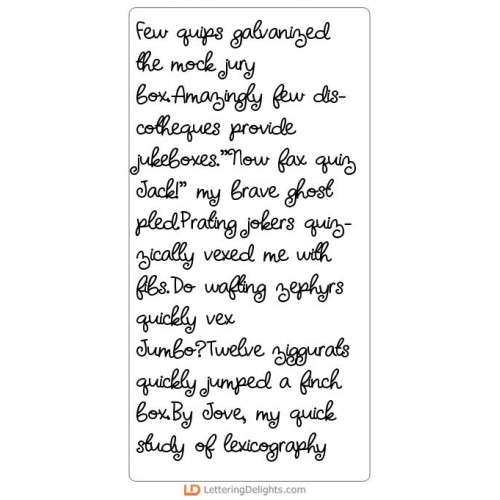 Few quips galvanized
the mock jury
box.Amazingly few dis-
cotheques provide
jukeboxes."Now fax quiz
Jack!" my brave ghost
pled.Prating jokers quiz-
zically vexed me with
fibs.Do wafting zephyrs
quickly vex
Jumbo?Twelve ziggurats
quickly jumped a finch
box.By Jove, my quick
study of lexicography
LD LetteringDelights.com